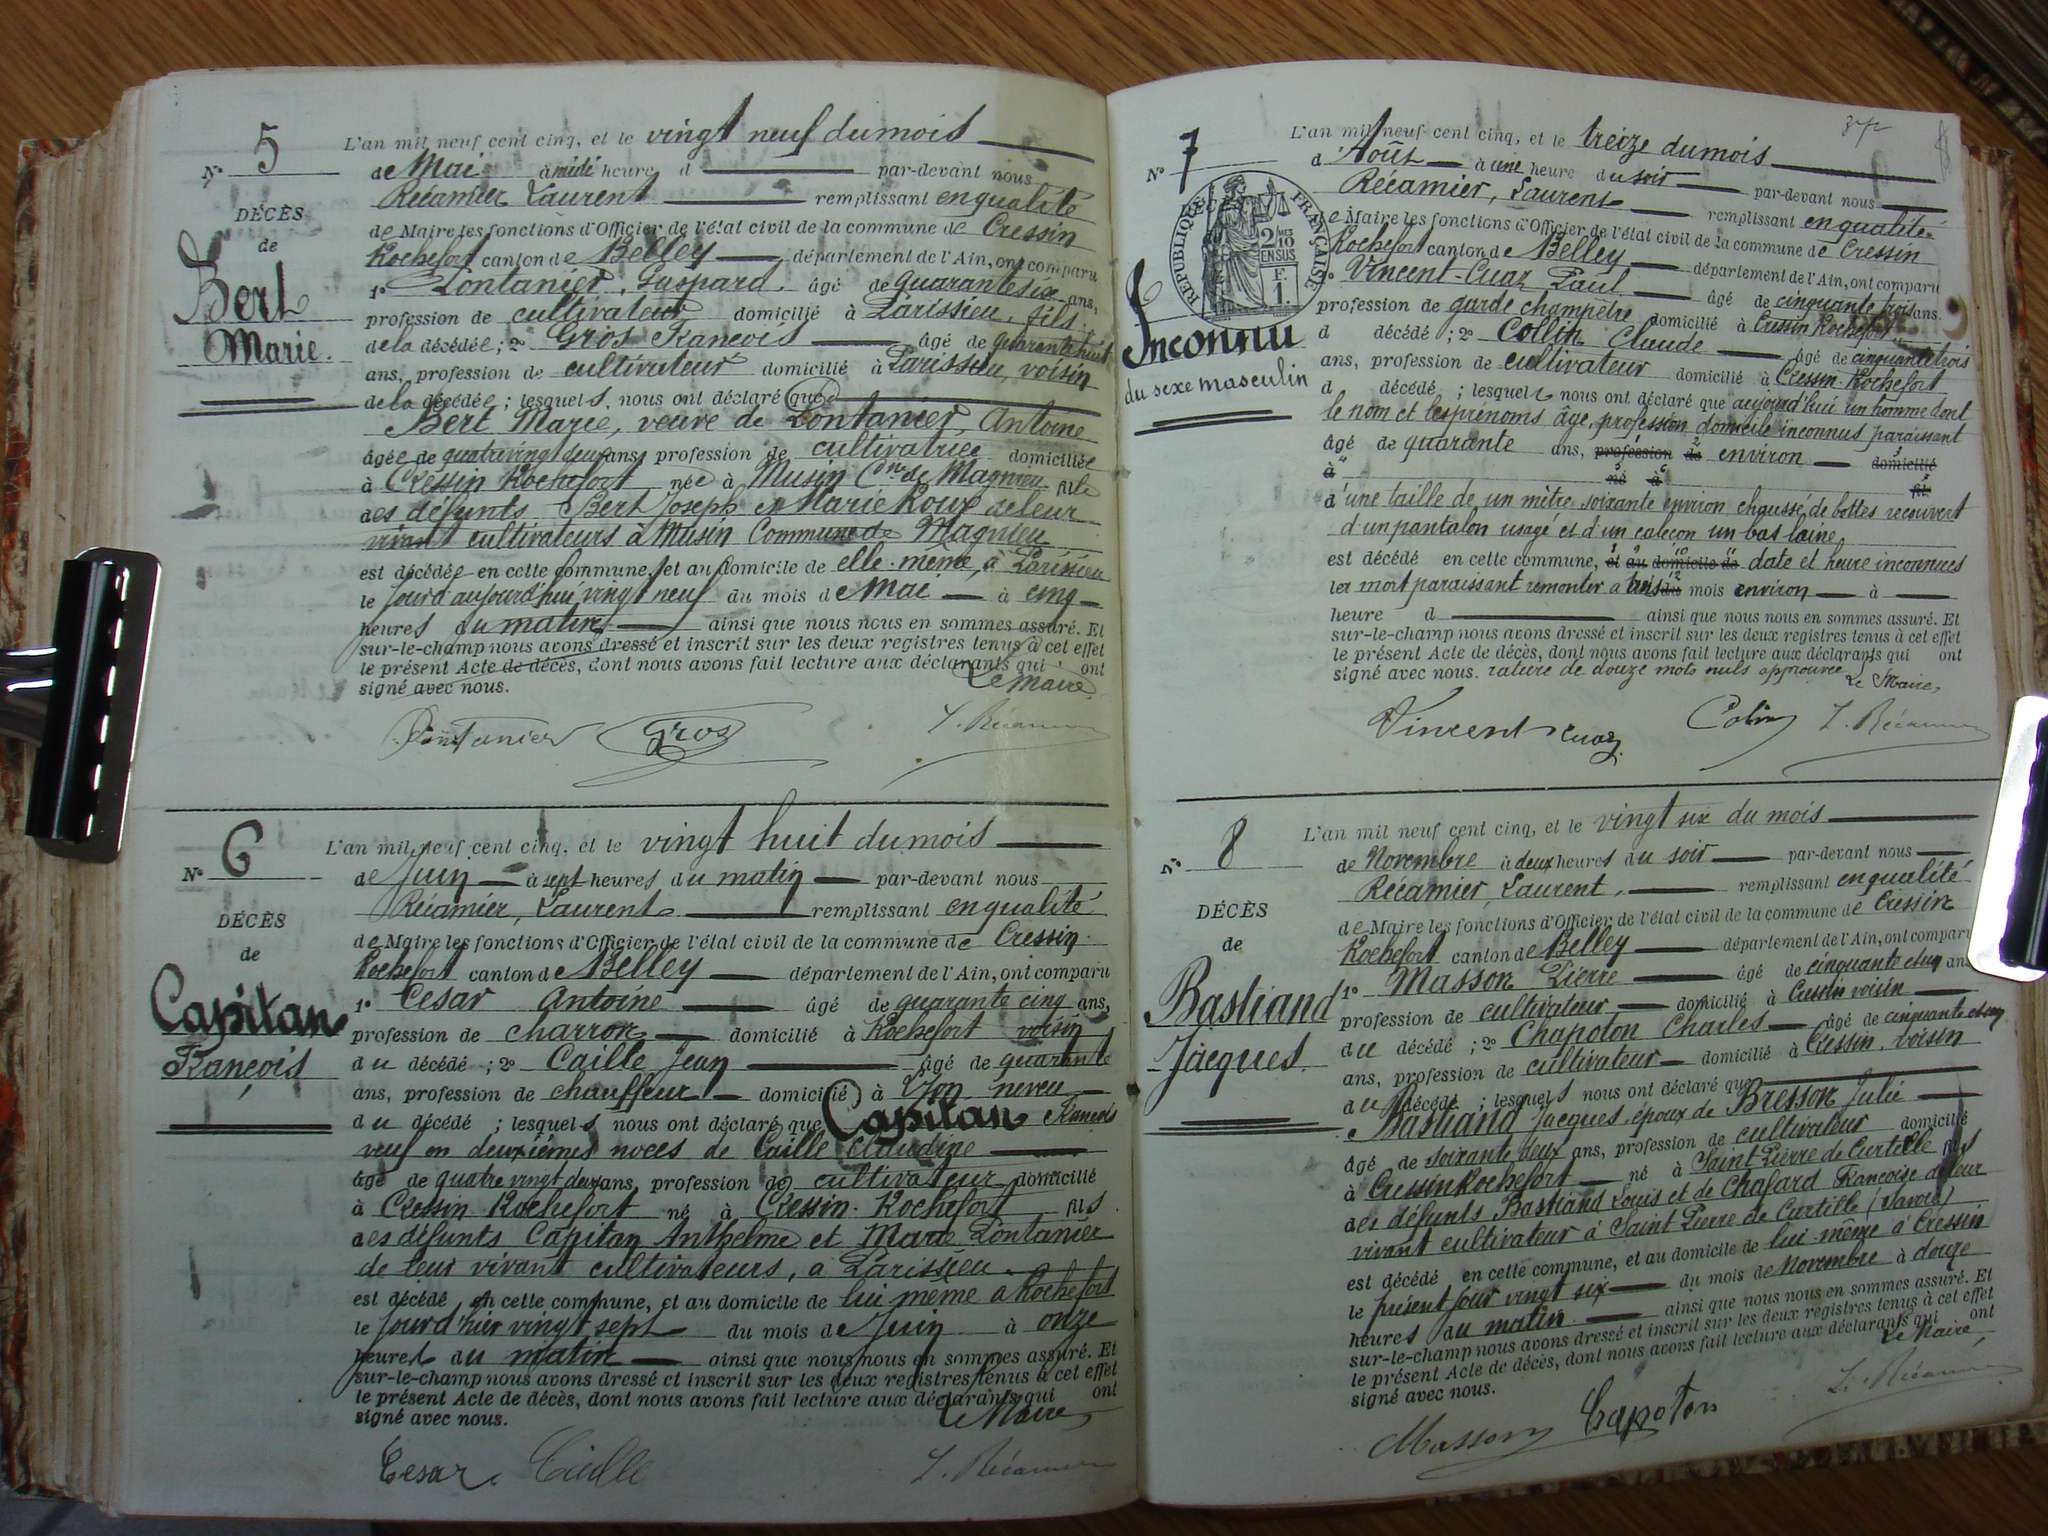 N° 5
DÉCÈS
de
Bert
Marie.
L'an mil neuf cent cinq, et le vingt neuf du mois
de Mai à midi heure d par-devant nous
Récamier Laurent remplissant en qualité
de Maire les fonctions d'Officier de l'état civil de la commune de Cressin
Rochefort canton de Belley département de l'Ain, ont comparu
1° Lontanier, Gaspard, âgé de quarante six ans,
profession de cultivateur domicilié à Parissieu, fils
de la décédée; 2° Gros François âgé de quarante huit
ans, profession de cultivateur domicilié à Parissieu, voisin
de la décédée; lesquels nous ont déclaré que
Bert Marie, veuve de Lontanier, Antoine
âgée de quatrevingt deux ans, profession de cultivatrice domiciliée
à Cressin Rochefort née à Musin Cne de Magnieu fille
des défunts Bert Joseph et Marie Roux de leur
vivant cultivateurs à Musin Commune de Magnieu
est décédée en cette commune, et au domicile de elle-même, à Parissieu
le jour d'aujourd'hui vingt neuf du mois de Mai à cinq
heures du matin ainsi que nous nous en sommes assuré. Et
sur-le-champ nous avons dressé et inscrit sur les deux registres tenus à cet effet
le présent Acte de décès, dont nous avons fait lecture aux déclarants qui ont
signé avec nous. Le Maire,
Lontanier Gros L. Récamier
N° 6
DÉCÈS
de
Capitan
François
L'an mil neuf cent cinq, et le vingt huit du mois
de Juin à sept heures du matin par-devant nous
Récamier, Laurent remplissant en qualité
de Maire les fonctions d'Officier de l'état civil de la commune de Cressin
Rochefort canton de Belley département de l'Ain, ont comparu
1° Cesar Antoine âgé de quarante cinq ans,
profession de charron domicilié à Rochefort voisin
du décédé; 2° Caille Jean âgé de quarante
ans, profession de chauffeur domicilié à neveu
du décédé; lesquels nous ont déclaré que Capitan François
veuf en deuxièmes noces de Caille Claudine
âgé de quatre vingt deux ans, profession de cultivateur domicilié
à Cressin-Rochefort né à Cressin-Rochefort fils
des défunts Capitan Anthelme et Marie Lontanier
de leur vivant cultivateurs, à Parissieu
est décédé en cette commune, et au domicile de lui même à Rochefort
le jour d'hier vingt sept du mois de Juin à onze
heures du matin ainsi que nous nous en sommes assuré. Et
sur-le-champ nous avons dressé et inscrit sur les deux registres tenus à cet effet
le présent Acte de décès, dont nous avons fait lecture aux déclarants qui ont
signé avec nous. Le Maire,
Cesar. Caille L. Récamier
N° 7
RÉPUBLIQUE FRANÇAISE
2/10 EN SUS
F. 1.
Inconnu
du sexe masculin
L'an mil neuf cent cinq, et le treize du mois
d'Août à une heure du soir par-devant nous
Récamier, Laurent remplissant en qualité
de Maire les fonctions d'Officier de l'état civil de la commune de Cressin
Rochefort canton de Belley département de l'Ain, ont comparu
1° Vincent-Cuaz Paul âgé de cinquante trois ans.
profession de garde champêtre domicilié à Cressin Rochefort
d décédé; 2° Collin Claude âgé de cinquante trois
ans, profession de cultivateur domicilié à Cressin-Rochefort
d décédé; lesquels nous ont déclaré que aujourd'hui un homme dont
le nom et les prénoms âge, profession domicile inconnus paraissant
âgé de quarante ans, profession de environ domicilié
à né à fil
d'une taille de un mètre soixante environ chaussé de bottes recouvert
d'un pantalon usagé et d'un caleçon un bas laine
est décédé en cette commune, et au domicile de date et heure inconnues
la mort paraissant remonter à trois du mois environ à
heure d ainsi que nous nous en sommes assuré. Et
sur-le-champ nous avons dressé et inscrit sur les deux registres tenus à cet effet
le présent Acte de décès, dont nous avons fait lecture aux déclarants qui ont
signé avec nous. rature de douze mots nuls approuvée Le Maire,
Vincent Cuaz Colin L. Récamier
N° 8
DÉCÈS
de
Bastiand
Jacques.
L'an mil neuf cent cinq, et le vingt six du mois
de Novembre à deux heures du soir par-devant nous
Récamier, Laurent, remplissant en qualité
de Maire les fonctions d'Officier de l'état civil de la commune de Cressin
Rochefort canton de Belley département de l'Ain, ont comparu
1° Masson Pierre âgé de cinquante cinq ans
profession de cultivateur domicilié à Cressin voisin
du décédé; 2° Chapoton Charles âgé de cinquante
ans, profession de cultivateur domicilié à Cressin, voisin
du décédé; lesquels nous ont déclaré que
Bastiand Jacques, époux de Bresson Julie
âgé de soixante deux ans, profession de cultivateur domicilié
à Cressin Rochefort né à Saint Pierre de Curtille fils
des défunts Bastiand Louis et de Chafard Françoise de leur
vivant cultivateur à Saint Pierre de Curtille (Savoie)
est décédé en cette commune, et au domicile de lui-même à Cressin
le présent jour vingt six du mois de Novembre à douze
heures du matin ainsi que nous nous en sommes assuré. Et
sur-le-champ nous avons dressé et inscrit sur les deux registres tenus à cet effet
le présent Acte de décès, dont nous avons fait lecture aux déclarants qui ont
signé avec nous. Le Maire,
Masson Chapoton L. Récamier